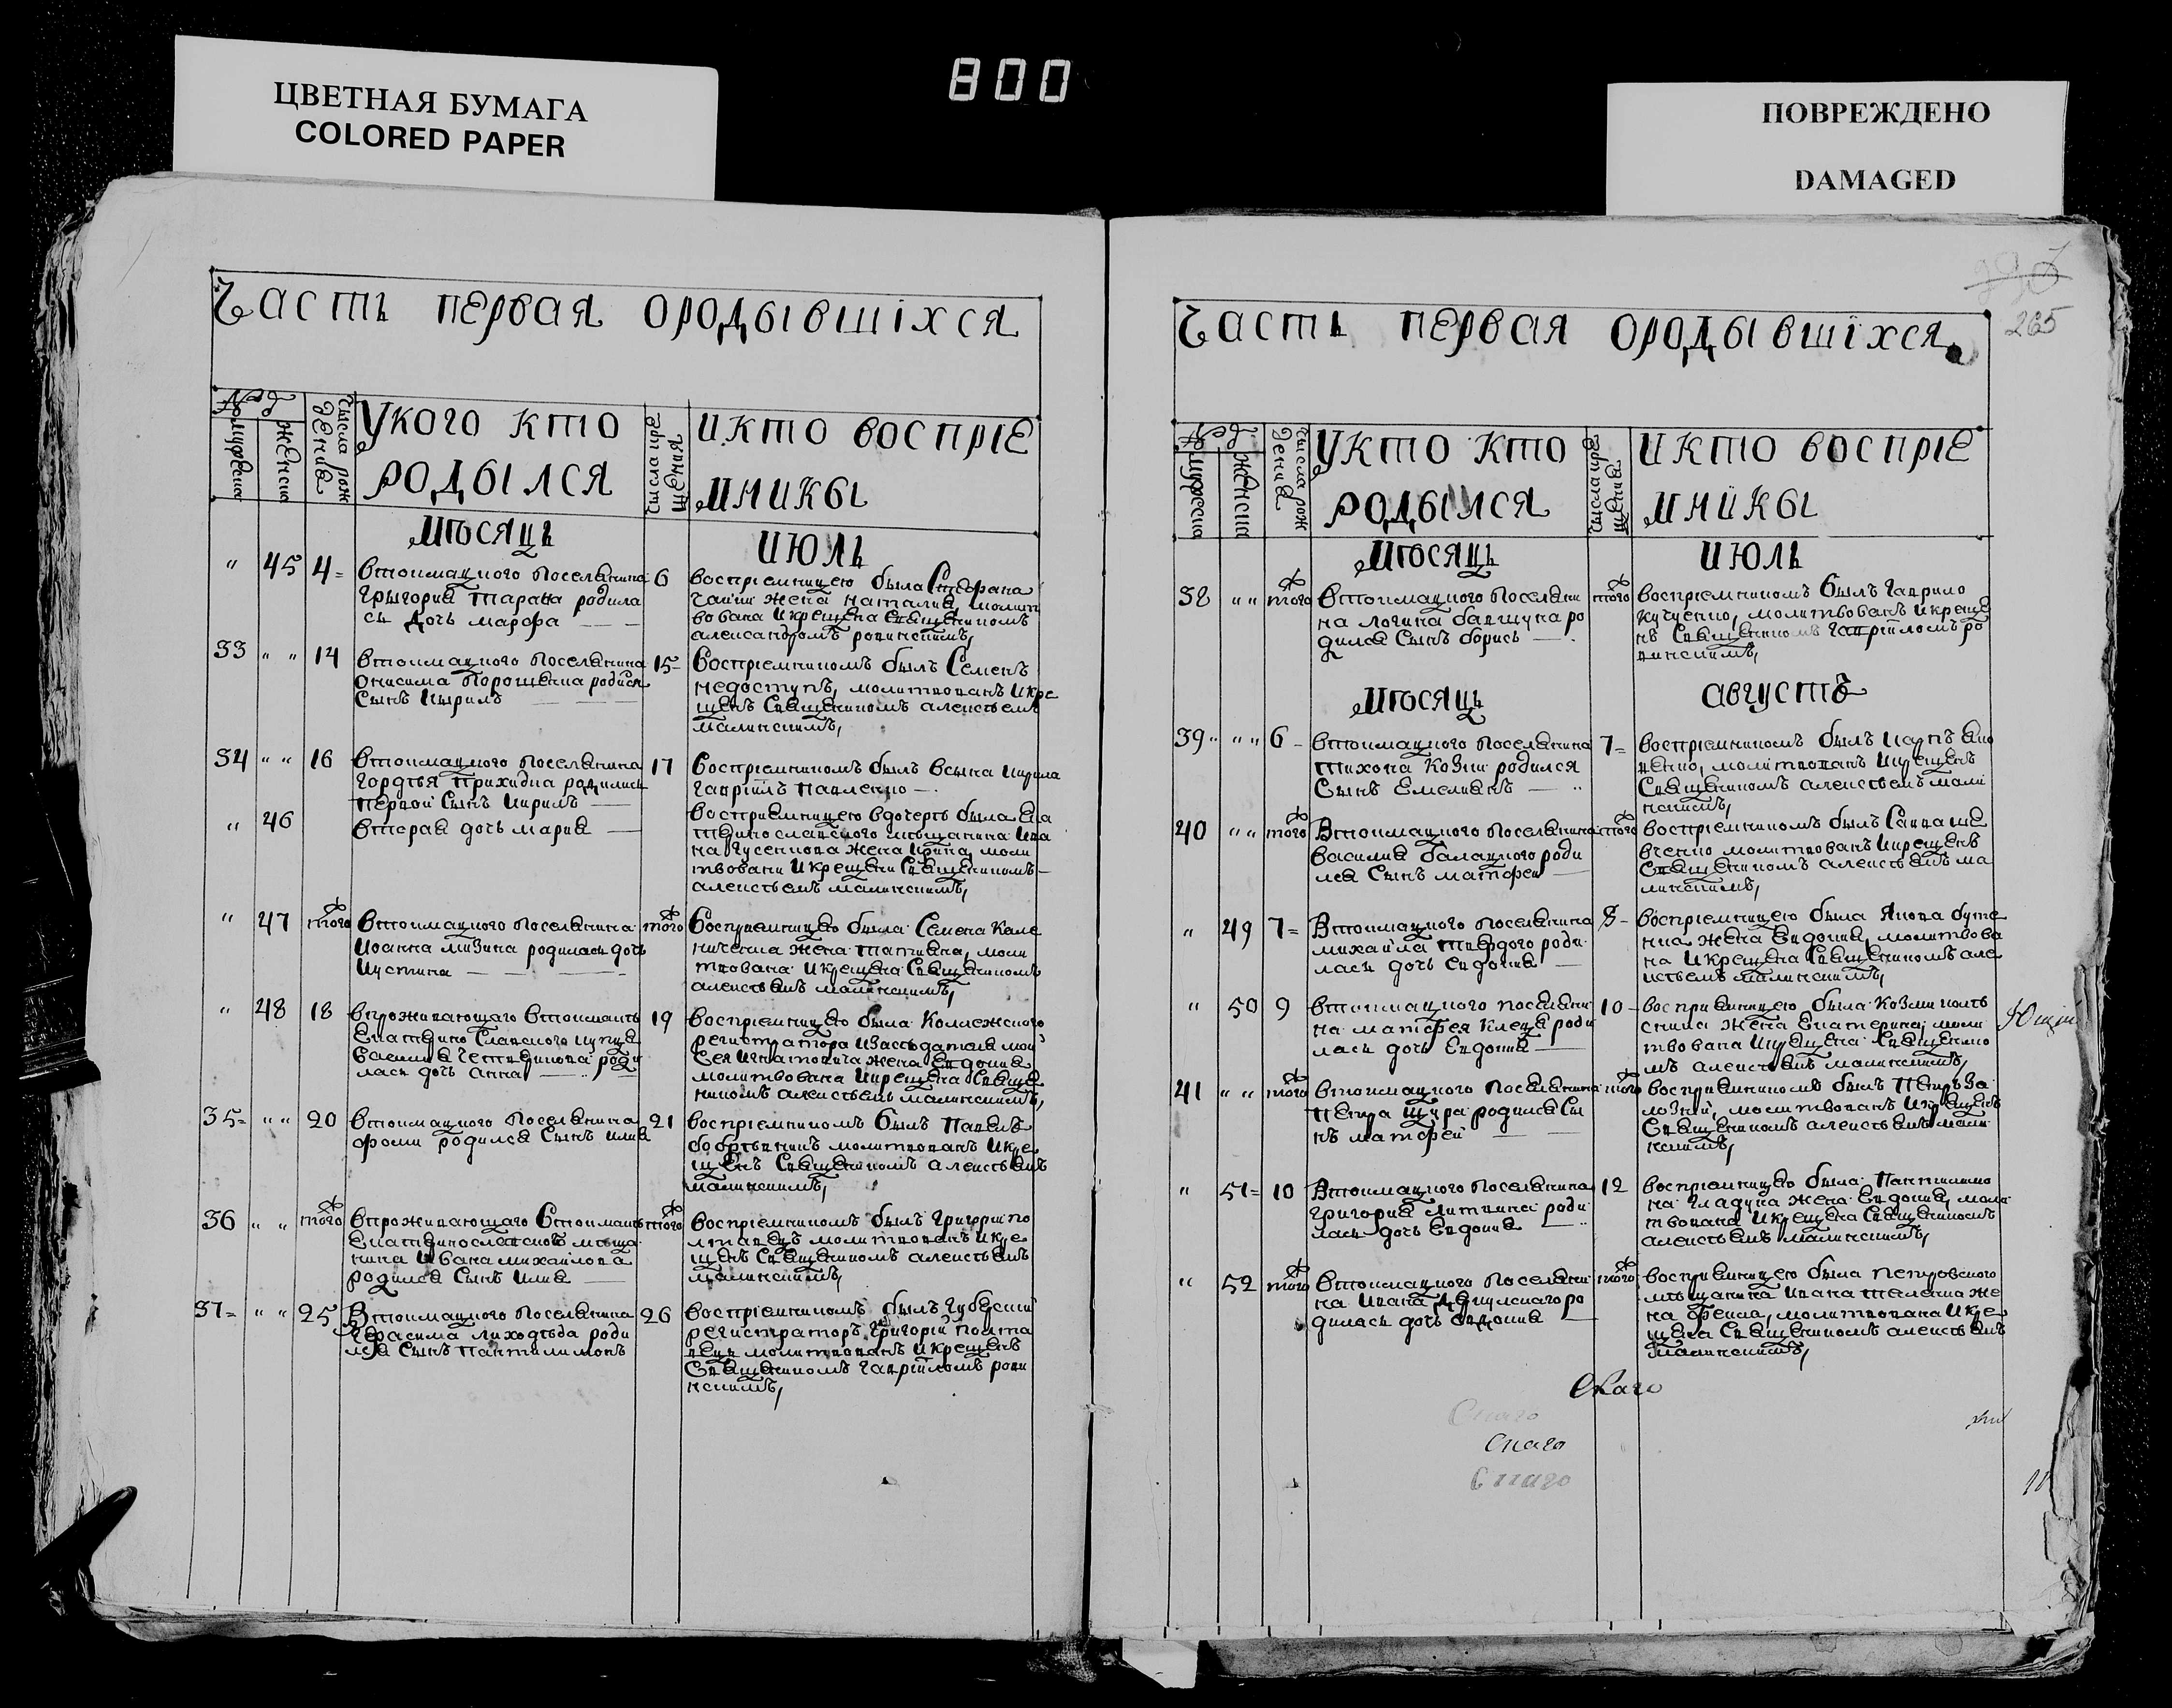 ЦВЕТНАЯ БУМАГА
COLORED PAPER
800
ПОВРЕЖДЕНО
DAMAGED
Часть первая о родывшихся
№
мужеска
женска
числа рож
дения
У кого кто
родылся
числа кре
щения
и кто восприе
мникы
Мѣсяць
Июль
" 45 4
в токмацкого поселянина
Григория Тарана родила
сь дочь марфа
6
восприемницею была Стефана
жена наталия, молит
вована и крещена Священиком
александром ровинским,
33 " " 14
в токмацкого поселянина
Онисима Порошина родися
Сынъ Кырилъ
15
Восприемником былъ Семенъ
недоступъ, молитвованъ и кре
щенъ Священикомъ алексѣемъ
малинскимъ,
34 " " 16
в токмацкого поселянина
Гордѣя Приходка родились
первой Сынъ Кирилъ
17
Восприемникомъ былъ в сына Кирила
Гавріилъ Павленко
" 46
вторая дочь мария
восприемницею в дочерь была Ека
терино славского мещанина Ива
на Гусенкова жена Ирина, моли
твовани и крещени Священикомъ
алексѣемъ малинскимъ,
" 47 того
в токмацкого поселянина
Иоанна лизина родилась дочь
Иустина
того
Восприемницею была Семена Кале
ниченка жена Татиана, моли
твована и крещена Священикомъ
алексѣемъ малинскимъ,
" 48 18
в проживающаго в токмакѣ
Екатерино Славского купца
Василия родi
лась дочь анна
19
восприемницею была Коллежского
регистратора и засѣдателя мои
сея Игнатовича жена Евдокия
молитвована и крещена Свяще
никомъ алексѣемъ малинскимъ,
35 " " 20
в токмацкого поселянина
фоми родился Сынъ илия
21
восприемникомъ былъ Павелъ
молитвованъ и кре
щенъ Священикомъ алексѣемъ
малинскимъ,
36 " " того
в проживающаго в токмакѣ
Екатеринославскомъ меща
нина Ивана михаилова
родился Сынъ илия
того
восприемникомъ былъ Григорій по
лтавецъ молитвованъ и кре
щенъ Священикомъ алексѣемъ
малинскимъ,
37 " " 25
В токмацкого поселянина
Герасима лиходѣда роди
лся Сынъ Пантилимонъ
26
восприемникомъ былъ Губерскій
регистраторъ Григорій Полта
вецъ молитвованъ и крещенъ
Священикомъ Гавріиломъ рови
нскимъ,
265
Часть первая о родывшихся
№
мужеска
женска
числа рож
дения
У кто кто
родылся
числа кре
щения
и кто восприе
мникы
Мѣсяць
Июль
38 " " того
в токмацкого поселяни
на логина бавкуна ро
дился Сынъ борисъ
того
восприемникомъ былъ Гаврило
Кученко, молитвованъ и креще
нъ Священикомъ Гавріиломъ ро
винскимъ,
Мѣсяць
августъ
39 " " 6
в токмацкого поселянина
Тихона Козки родился
Сынъ Емелианъ
7
восприемникомъ былъ Карпъ
молитвованъ и крещенъ
Священикомъ алексѣемъ мали
нскимъ,
40 " " того
В токмацкого поселянина
василия балацкого роди
лся Сынъ матфей
того
восприемникомъ былъ Савва ше
вченко молитвованъ и крещенъ
Священикомъ алексѣемъ ма
линскимъ,
" 49 7
В токмацкого поселянина
михаила твердого роди
лась дочь евдокия
8
восприемницею была Якова бута
жена Евдокия, молитвова
на и крещена Священикомъ але
ксѣемъ малинскимъ,
" 50 9
в токмацкого поселяни
на матфея Клеща роди
лась дочь Евдокия
10
восприемницею была Козми
жена Екатерина, моли
твована и крещена Священико
мъ алексѣемъ малинскимъ,
41 " " того
в токмацкого поселянина
Петра Щура родился Сы
нъ матфей
того
восприемникомъ былъ Петръ За
лозный, молитвованъ и крещенъ
Священикомъ алексѣемъ мали
нскимъ,
" 51 10
В токмацкого поселянина
Григория литвина роди
лась дочь Евдокия
12
восприемницею была Пантилимо
на Гладуна жена Евдокия, моли
твована и крещена Священикомъ
алексѣемъ малинскимъ,
" 52 того
в токмацкого поселяни
на ивана ро
дилась дочь евдокия
того
восприемницею была петровского
мѣщанина ивана жe
на фекла, молитвована и кре
щена Священикомъ алексѣемъ
малинскимъ,
Скаго
Скаго
Скаго
Скаго